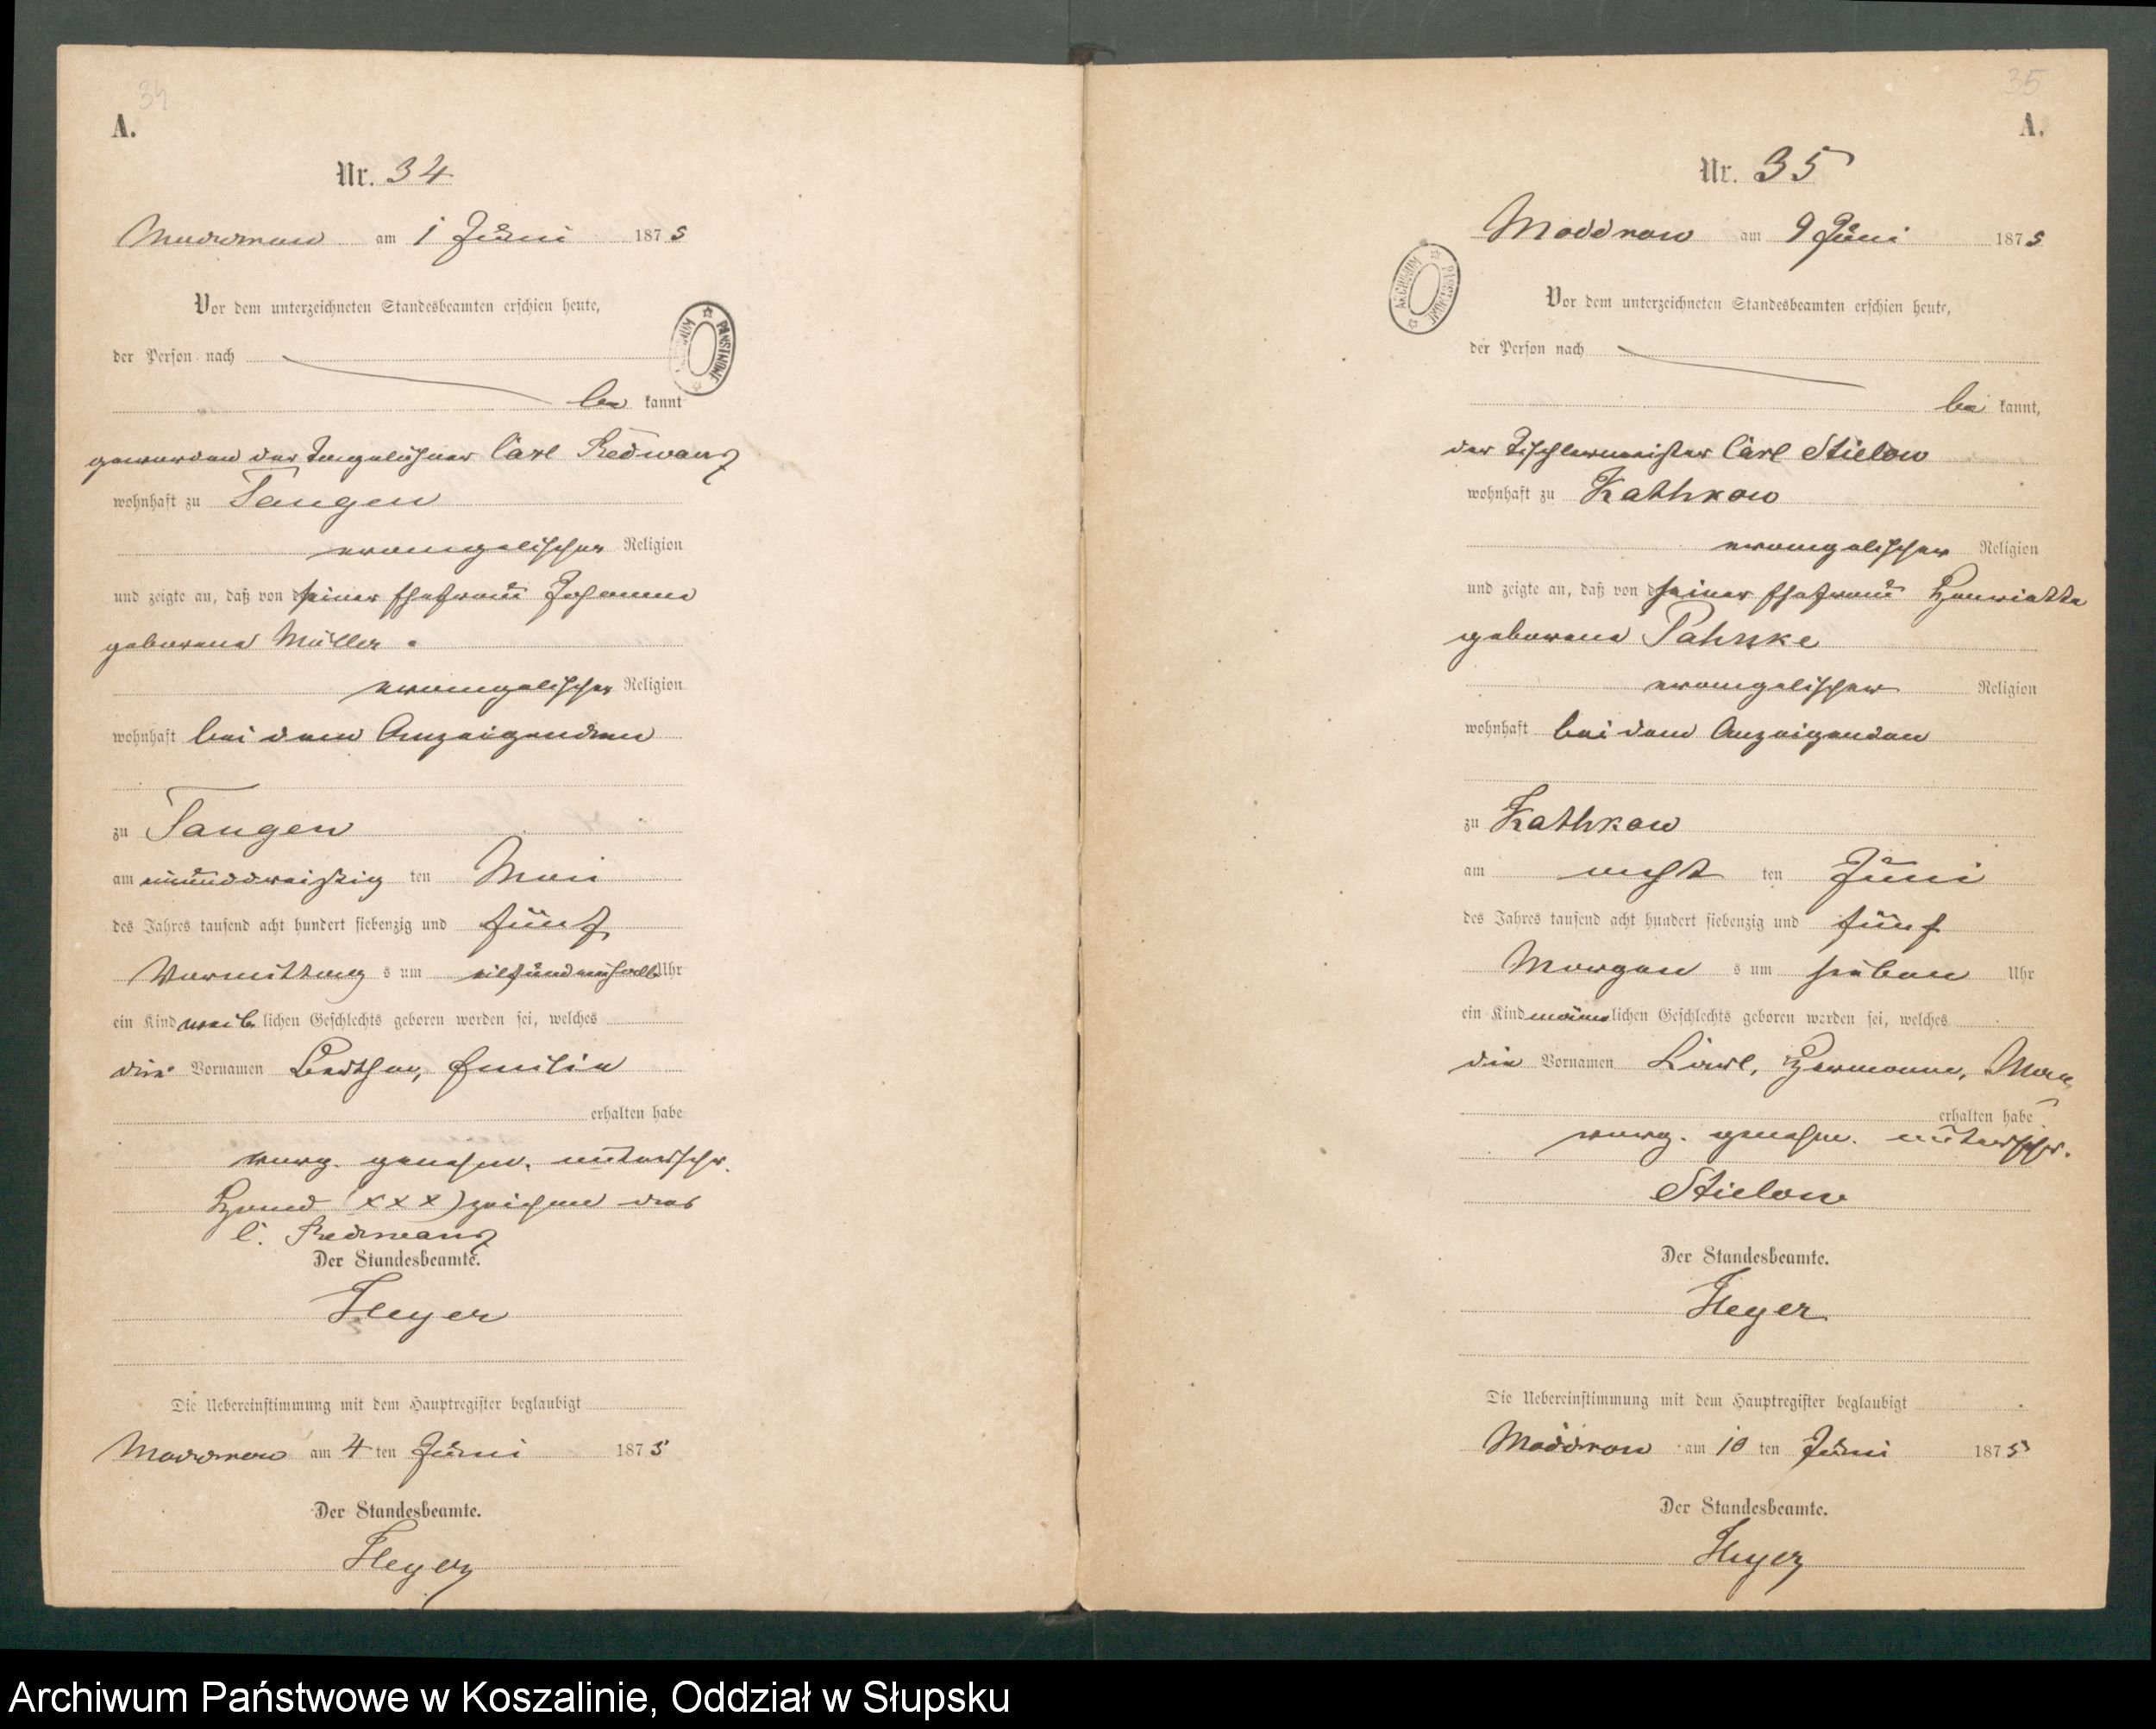 34
A.
Nr. 34
Moddrow am 1 Juni 1875
Vor dem unterzeichneten Standesbeamten erschien heute,
der Person nach
be kannt
geworden der Tagelöhner Carl Redwanz
wohnhaft zu Tangen
evangelischer Religion
und zeigte an, daß von seiner Ehefrau Johanne
geborene Müller
evangelischer Religion
wohnhaft bei dem Anzeigenden
zu Tangen
am einunddreißig ten Mai
des Jahres tausend acht hundert siebenzig und fünf
Vormittag s um elfundeinhalb Uhr
ein Kind weib lichen Geschlechts geboren worden sei, welches
die Vornamen Bertha, Emilie
erhalten habe
vorg. genehm. unterschr.
Hand (xxx) zeichen des
C. Redwanz
Der Standesbeamte.
Heyer
Die Uebereinstimmung mit dem Hauptregister beglaubigt
Moddrow am 4 ten Juni 1875
Der Standesbeamte.
Heyer
ARCHIWUM PAŃSTWOWE
35
A.
Nr. 35
Moddrow am 9 Juni 1875
Vor dem unterzeichneten Standesbeamten erschien heute,
der Person nach
be kannt,
der Tischlermeister Carl Stielow
wohnhaft zu Kathkow
evangelischer Religion
und zeigte an, daß von seiner Ehefrau Henriette
geborene Pahnke
evangelischer Religion
wohnhaft bei dem Anzeigenden
zu Kathkow
am acht ten Juni
des Jahres tausend acht hundert siebenzig und fünf
Morgen s um sieben Uhr
ein Kind männ lichen Geschlechts geboren worden sei, welches
die Vornamen Carl, Hermann, Max
erhalten habe
vorg. genehm. unterschr.
Stielow
Der Standesbeamte.
Heyer
Die Uebereinstimmung mit dem Hauptregister beglaubigt
Moddrow am 10 ten Juni 1875
Der Standesbeamte.
Heyer
ARCHIWUM PAŃSTWOWE
Archiwum Państwowe w Koszalinie, Oddział w Słupsku